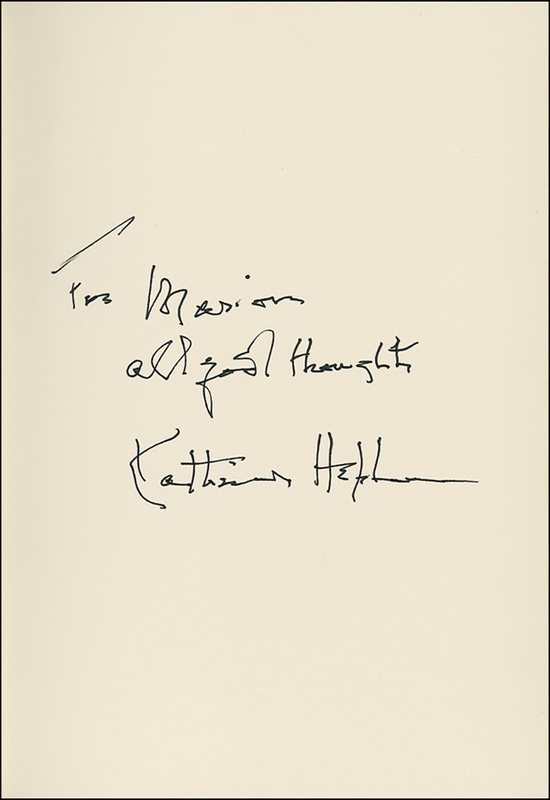 To Marion
all good thoughts
Katharine Hepburn